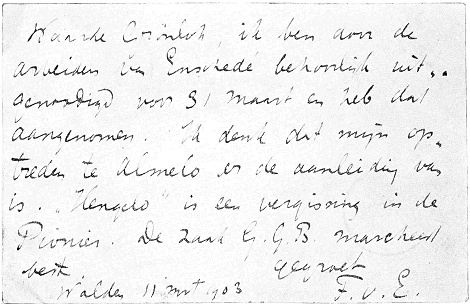 Waarde Crönlob, ik ben door de
arbeiders van Enschedé behoorlijk uit„
genoodigd voor 31 maart en heb dat
aangenomen. Ik denk dat mijn op„
treden te Almelo er de aanleiding van
is. „Hengelo" is een vergissing in de
Pionier. De zaak G.G.B. marcheert
best gegroet
Walden 11 mrt 903 F. v. E.